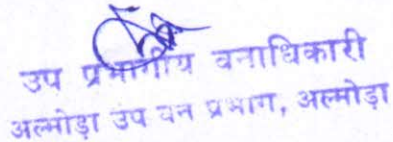 उप प्रभागीय वनाधिकारी
अल्मोड़ा उप वन प्रभाग, अल्मोड़ा